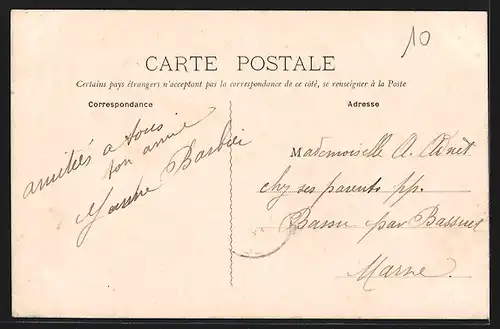 10
CARTE POSTALE
Certains pays étrangers n'acceptant pas la correspondance de ce côté, se renseigner à la Poste
Correspondance
amitiés a tous
ton amie
Barbier
Adresse
Mademoiselle A. Adnet
chez ses parents pp.
Bassu par Bassuet
Marne.